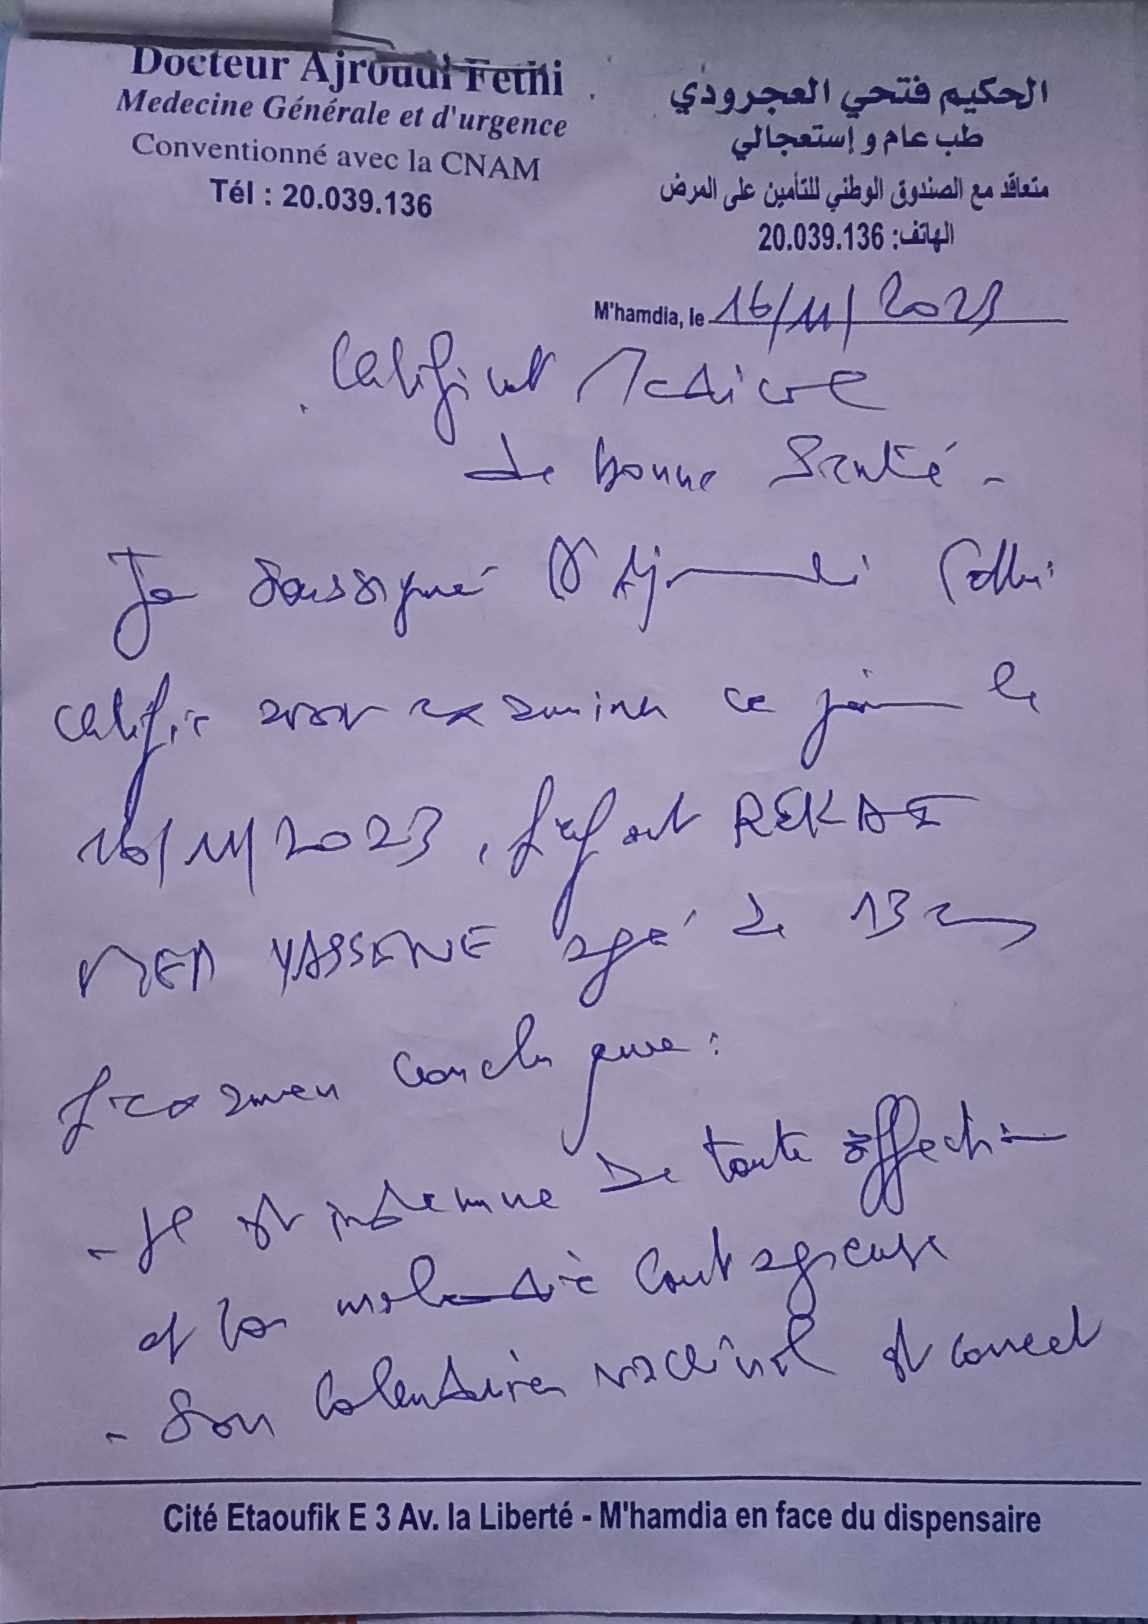 Docteur Ajroudi Fethi
Medecine Générale et d'urgence
Conventionné avec la CNAM
Tél : 20.039.136
الحكيم فتحي العجرودي
طب عام و إستعجالي
متعاقد مع الصندوق الوطني للتأمين على المرض
الهاتف: 20.039.136
M'hamdia, le 16/11/2023
Certificat Medical
de bonne Santé -
Je soussigné Dr Ajroudi Fethi
certifie avoir examiner ce jour le
16/11/2023, l'enfant REKAI
MED YASSINE agé de 13 ans
l'examen conclu que :
- Il est indemne de toute affection
et la maladie contagieuse
- Son calendrier vaccinal est correct
Cité Etaoufik E 3 Av. la Liberté - M'hamdia en face du dispensaire